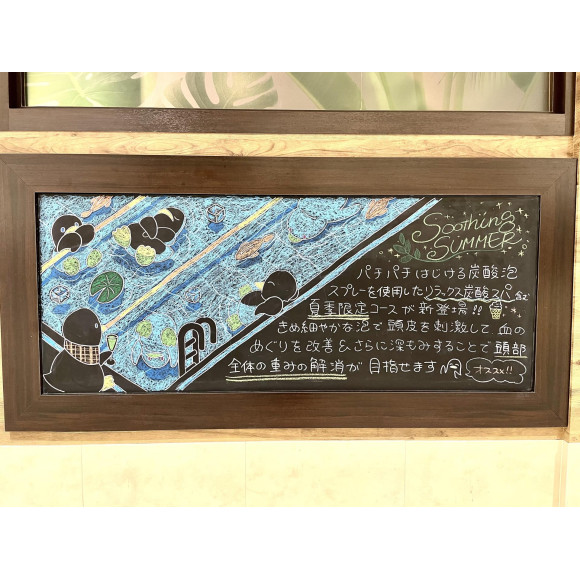 Soothing
SUMMER
パチパチはじける炭酸泡
スプレーを使用したリラックス炭酸スパなど
夏季限定コースが新登場!!
きめ細やかな泡で頭皮を刺激して血の
めぐりを改善&さらに深もみすることで頭部
全体の重みの解消が目指せます
オススメ!!